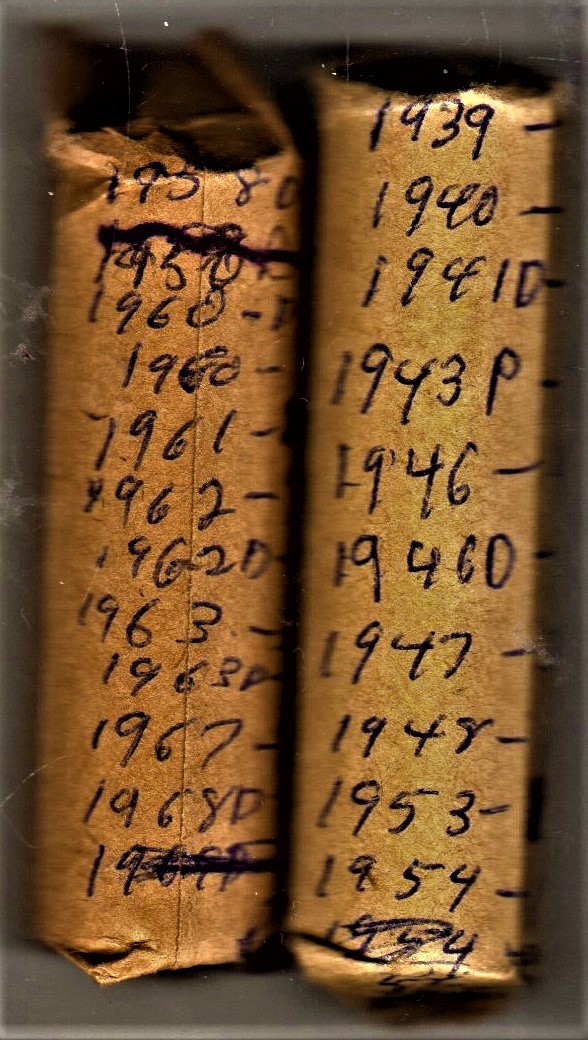 1958D
1960-D
1960-
1961-
1962-
1962D
1963-
1963D
1967-
1968D
1939-
1940-
1941D-
1943P-
1946-
1946D-
1947-
1948-
1953-
1954-